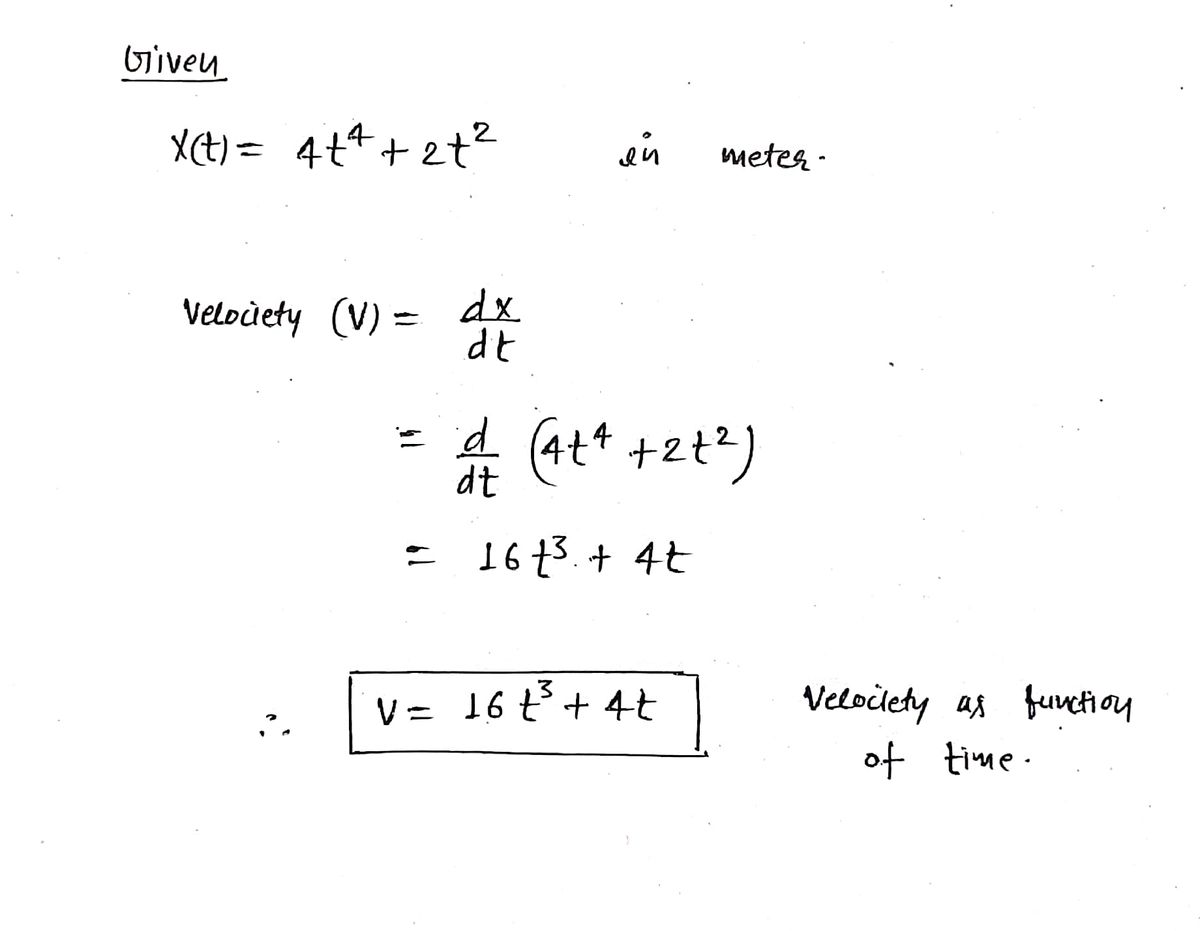 Given
X(t) = 4t⁴ + 2t² in meter.
Velociety (V) = dx/dt
= d/dt (4t⁴ + 2t²)
= 16t³ + 4t
∴ V = 16t³ + 4t Velociety as function
of time.